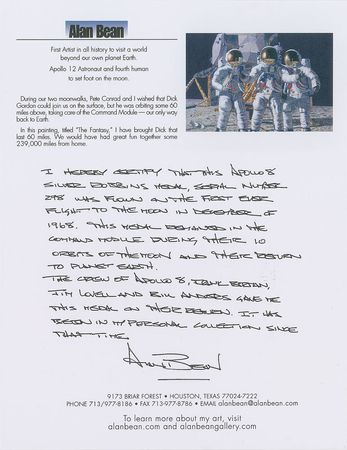 Alan Bean
First Artist in all history to visit a world
beyond our own planet Earth.
Apollo 12 Astronaut and fourth human
to set foot on the moon.
During our two moonwalks, Pete Conrad and I wished that Dick
Gordon could join us on the surface, but he was orbiting some 60
miles above, taking care of the Command Module — our only way
back to Earth.
In this painting, titled "The Fantasy," I have brought Dick that
last 60 miles. We would have had great fun together some
239,000 miles from home.
I HEREBY CERTIFY THAT THIS APOLLO 8
SILVER ROBBINS MEDAL, SERIAL NUMBER
298 WAS FLOWN ON THE FIRST EVER
FLIGHT TO THE MOON IN DECEMBER OF
1968. THIS MEDAL REMAINED IN THE
COMMAND MODULE DURING THEIR 10
ORBITS OF THE MOON AND THEIR RETURN
TO PLANET EARTH.
THE CREW OF APOLLO 8, FRANK BORMAN,
JIM LOVELL AND BILL ANDERS GAVE ME
THIS MEDAL ON THEIR RETURN. IT HAS
BEEN IN MY PERSONAL COLLECTION SINCE
THAT TIME.
ALAN BEAN
9173 BRIAR FOREST • HOUSTON, TEXAS 77024-7222
PHONE 713/977-8186 • FAX 713-977-8786 • EMAIL alanbean@alanbean.com
To learn more about my art, visit
alanbean.com and alanbeangallery.com